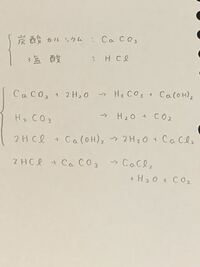 炭酸カルシウム : CaCO₃
塩酸 : HCl
CaCO₃ + 2H₂O → H₂CO₃ + Ca(OH)₂
H₂CO₃ → H₂O + CO₂
2HCl + Ca(OH)₂ → 2H₂O + CaCl₂
2HCl + CaCO₃ → CaCl₂
+ H₂O + CO₂